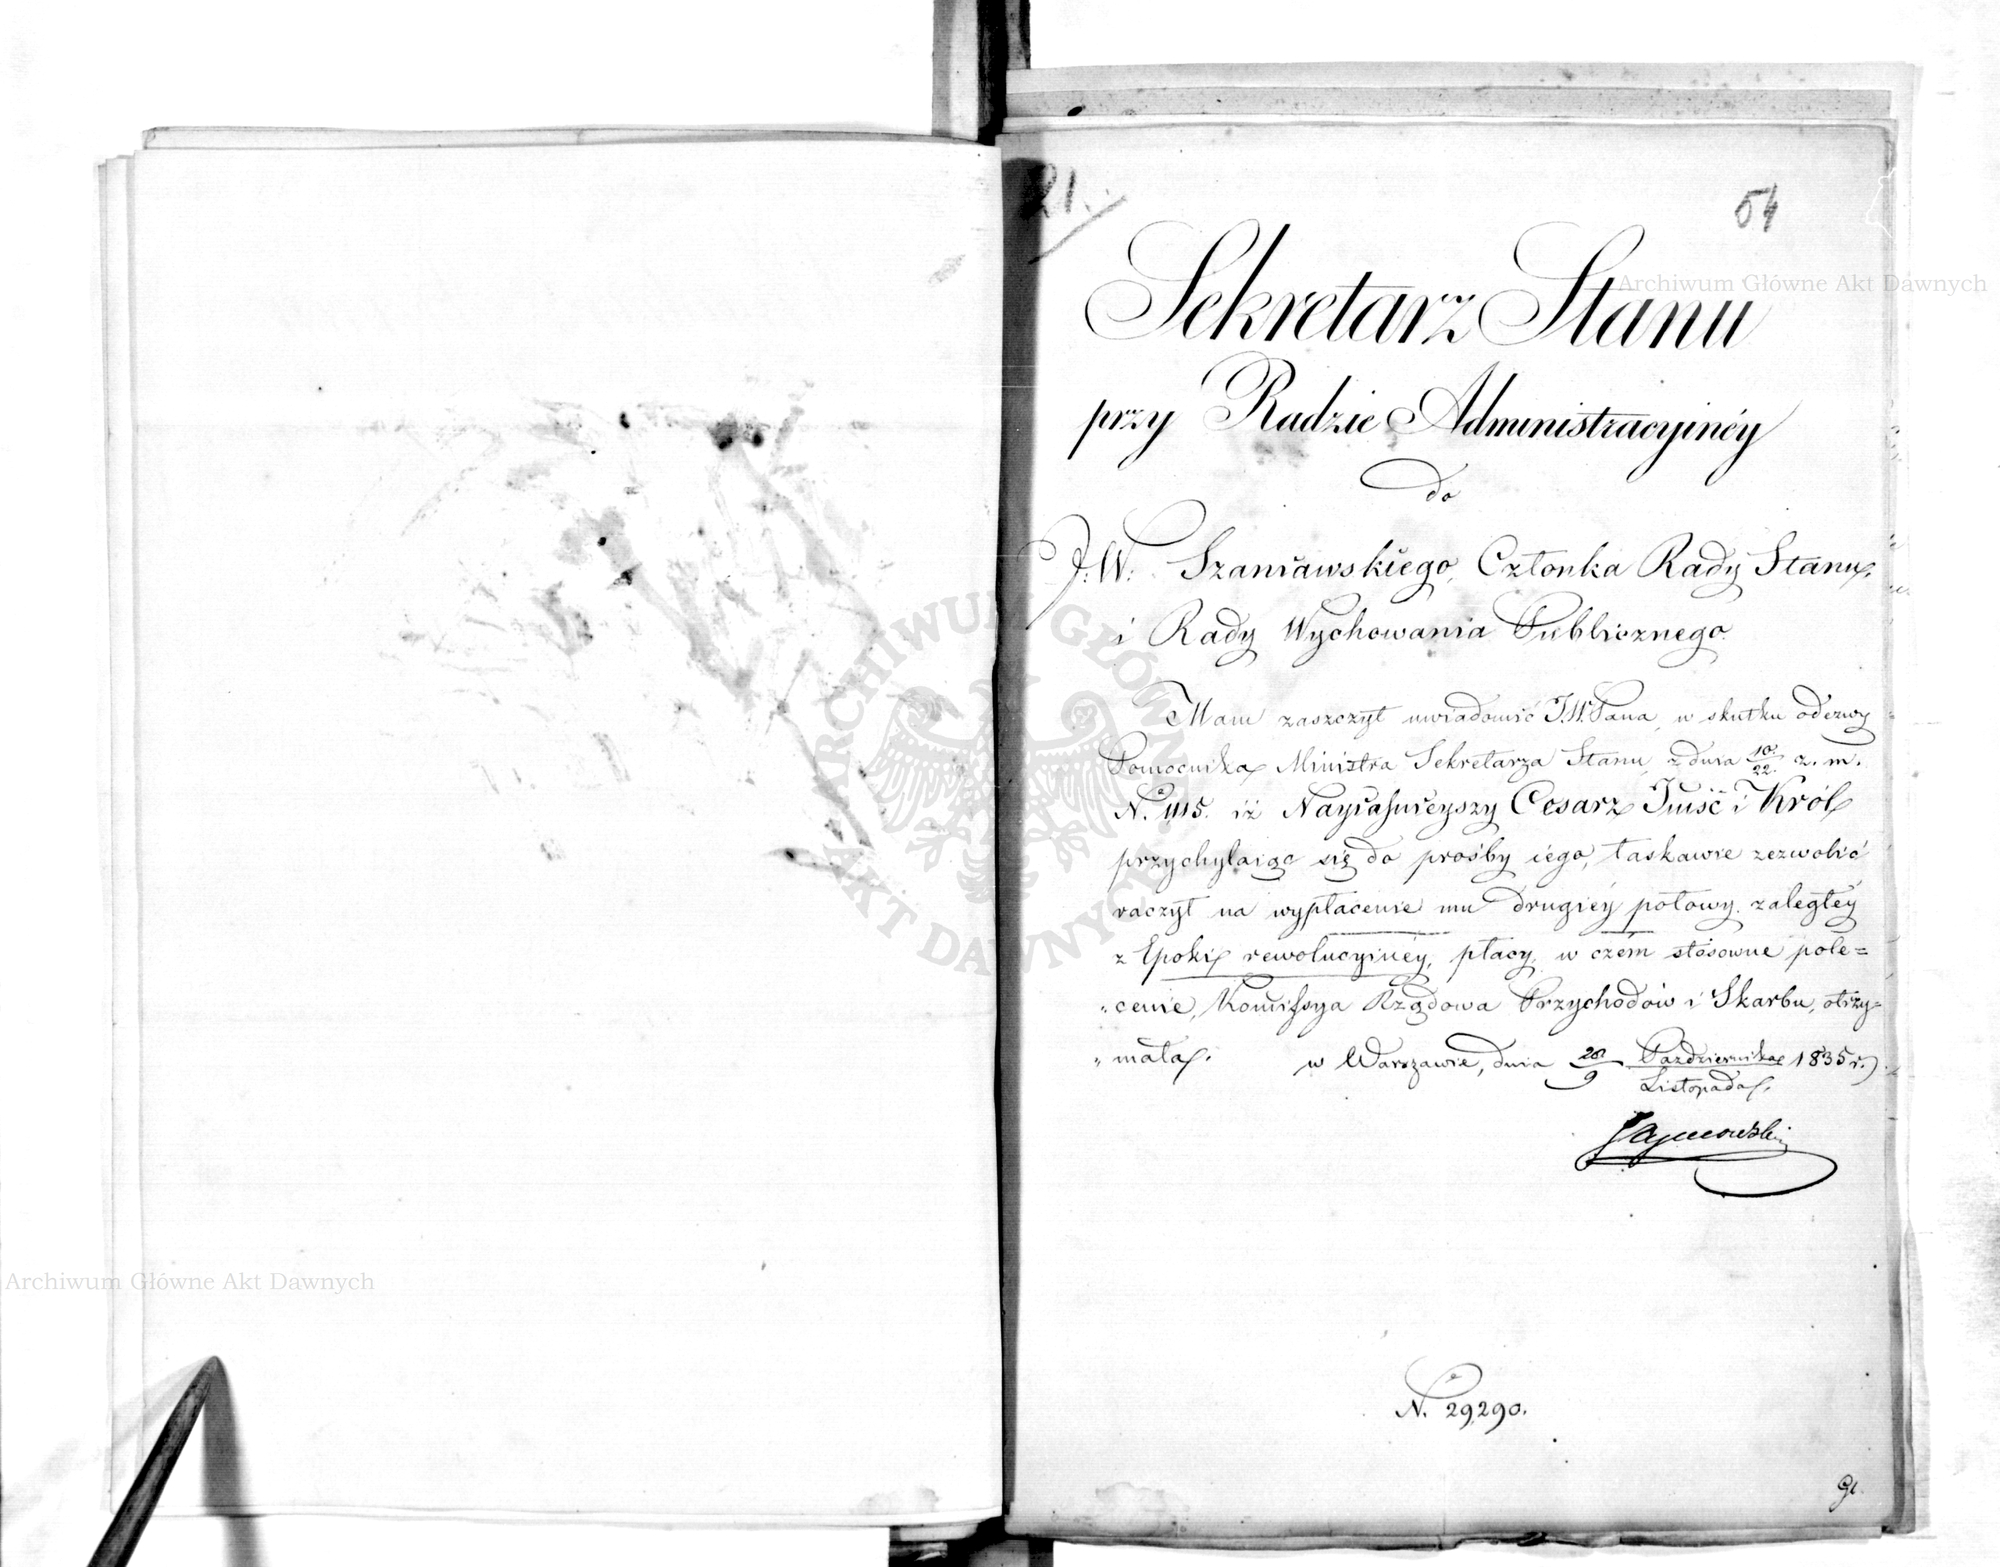 21.
54
Sekretarz Stanu
przy Radzie Administracyinéy
do
J: W: Szaniawskiego, Członka Rady Stanu,
i Rady Wychowania Publicznego.
Mam zaszczyt uwiadomić J.W. Pana, w skutku odezwy
Pomocnika Ministra Sekretarza Stanu, z dnia 10/22 z. m.
No. 1115. iż Nayiaśnieyszy Cesarz Jmść i Król
przychylaiąc się do prośby iego, łaskawie zezwolić
raczył na wypłacenie mu drugiéy połowy zaległéy
z Epoki rewolucyinéy, płacy, w czém stósowne pole=
„cenie, Kommissya Rządowa Przychodów i Skarbu, otrzy=
„mała. w Warszawie, dnia 28/9 Października/Listopada 1835 r.
No. 29,290.
Archiwum Główne Akt Dawnych
Archiwum Główne Akt Dawnych
ARCHIWUM GŁÓWNE AKT DAWNYCH